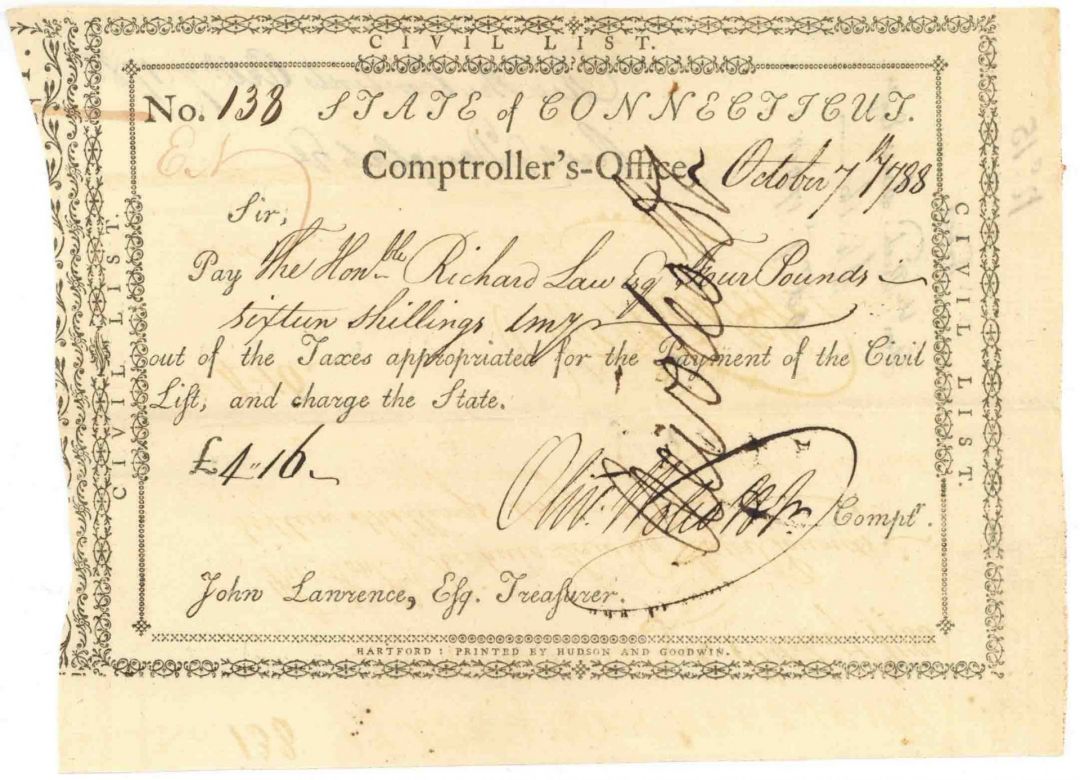 CIVIL LIST.
No. 138 STATE of CONNECTICUT.
Comptroller's-Office, October 7th 1788
Sir,
Pay The Honble Richard Law Esqr Four Pounds
sixteen shillings lmy
out of the Taxes appropriated for the Payment of the Civil
List, and charge the State.
£4"16
Olivr Wolcott Jr Comptr.
John Lawrence, Esq. Treasurer.
HARTFORD : PRINTED BY HUDSON AND GOODWIN.
CIVIL LIST.
CIVIL LIST.